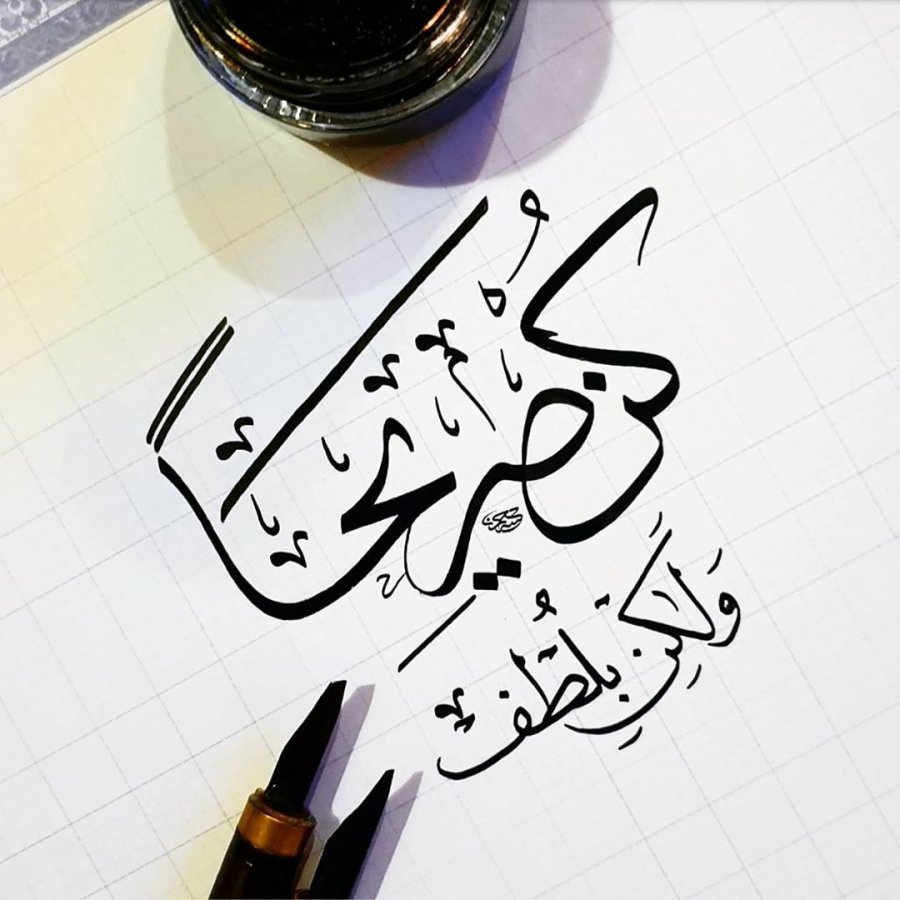 كُنْ صَرِيحًا
وَلَكِنْ بِلُطْفٍ